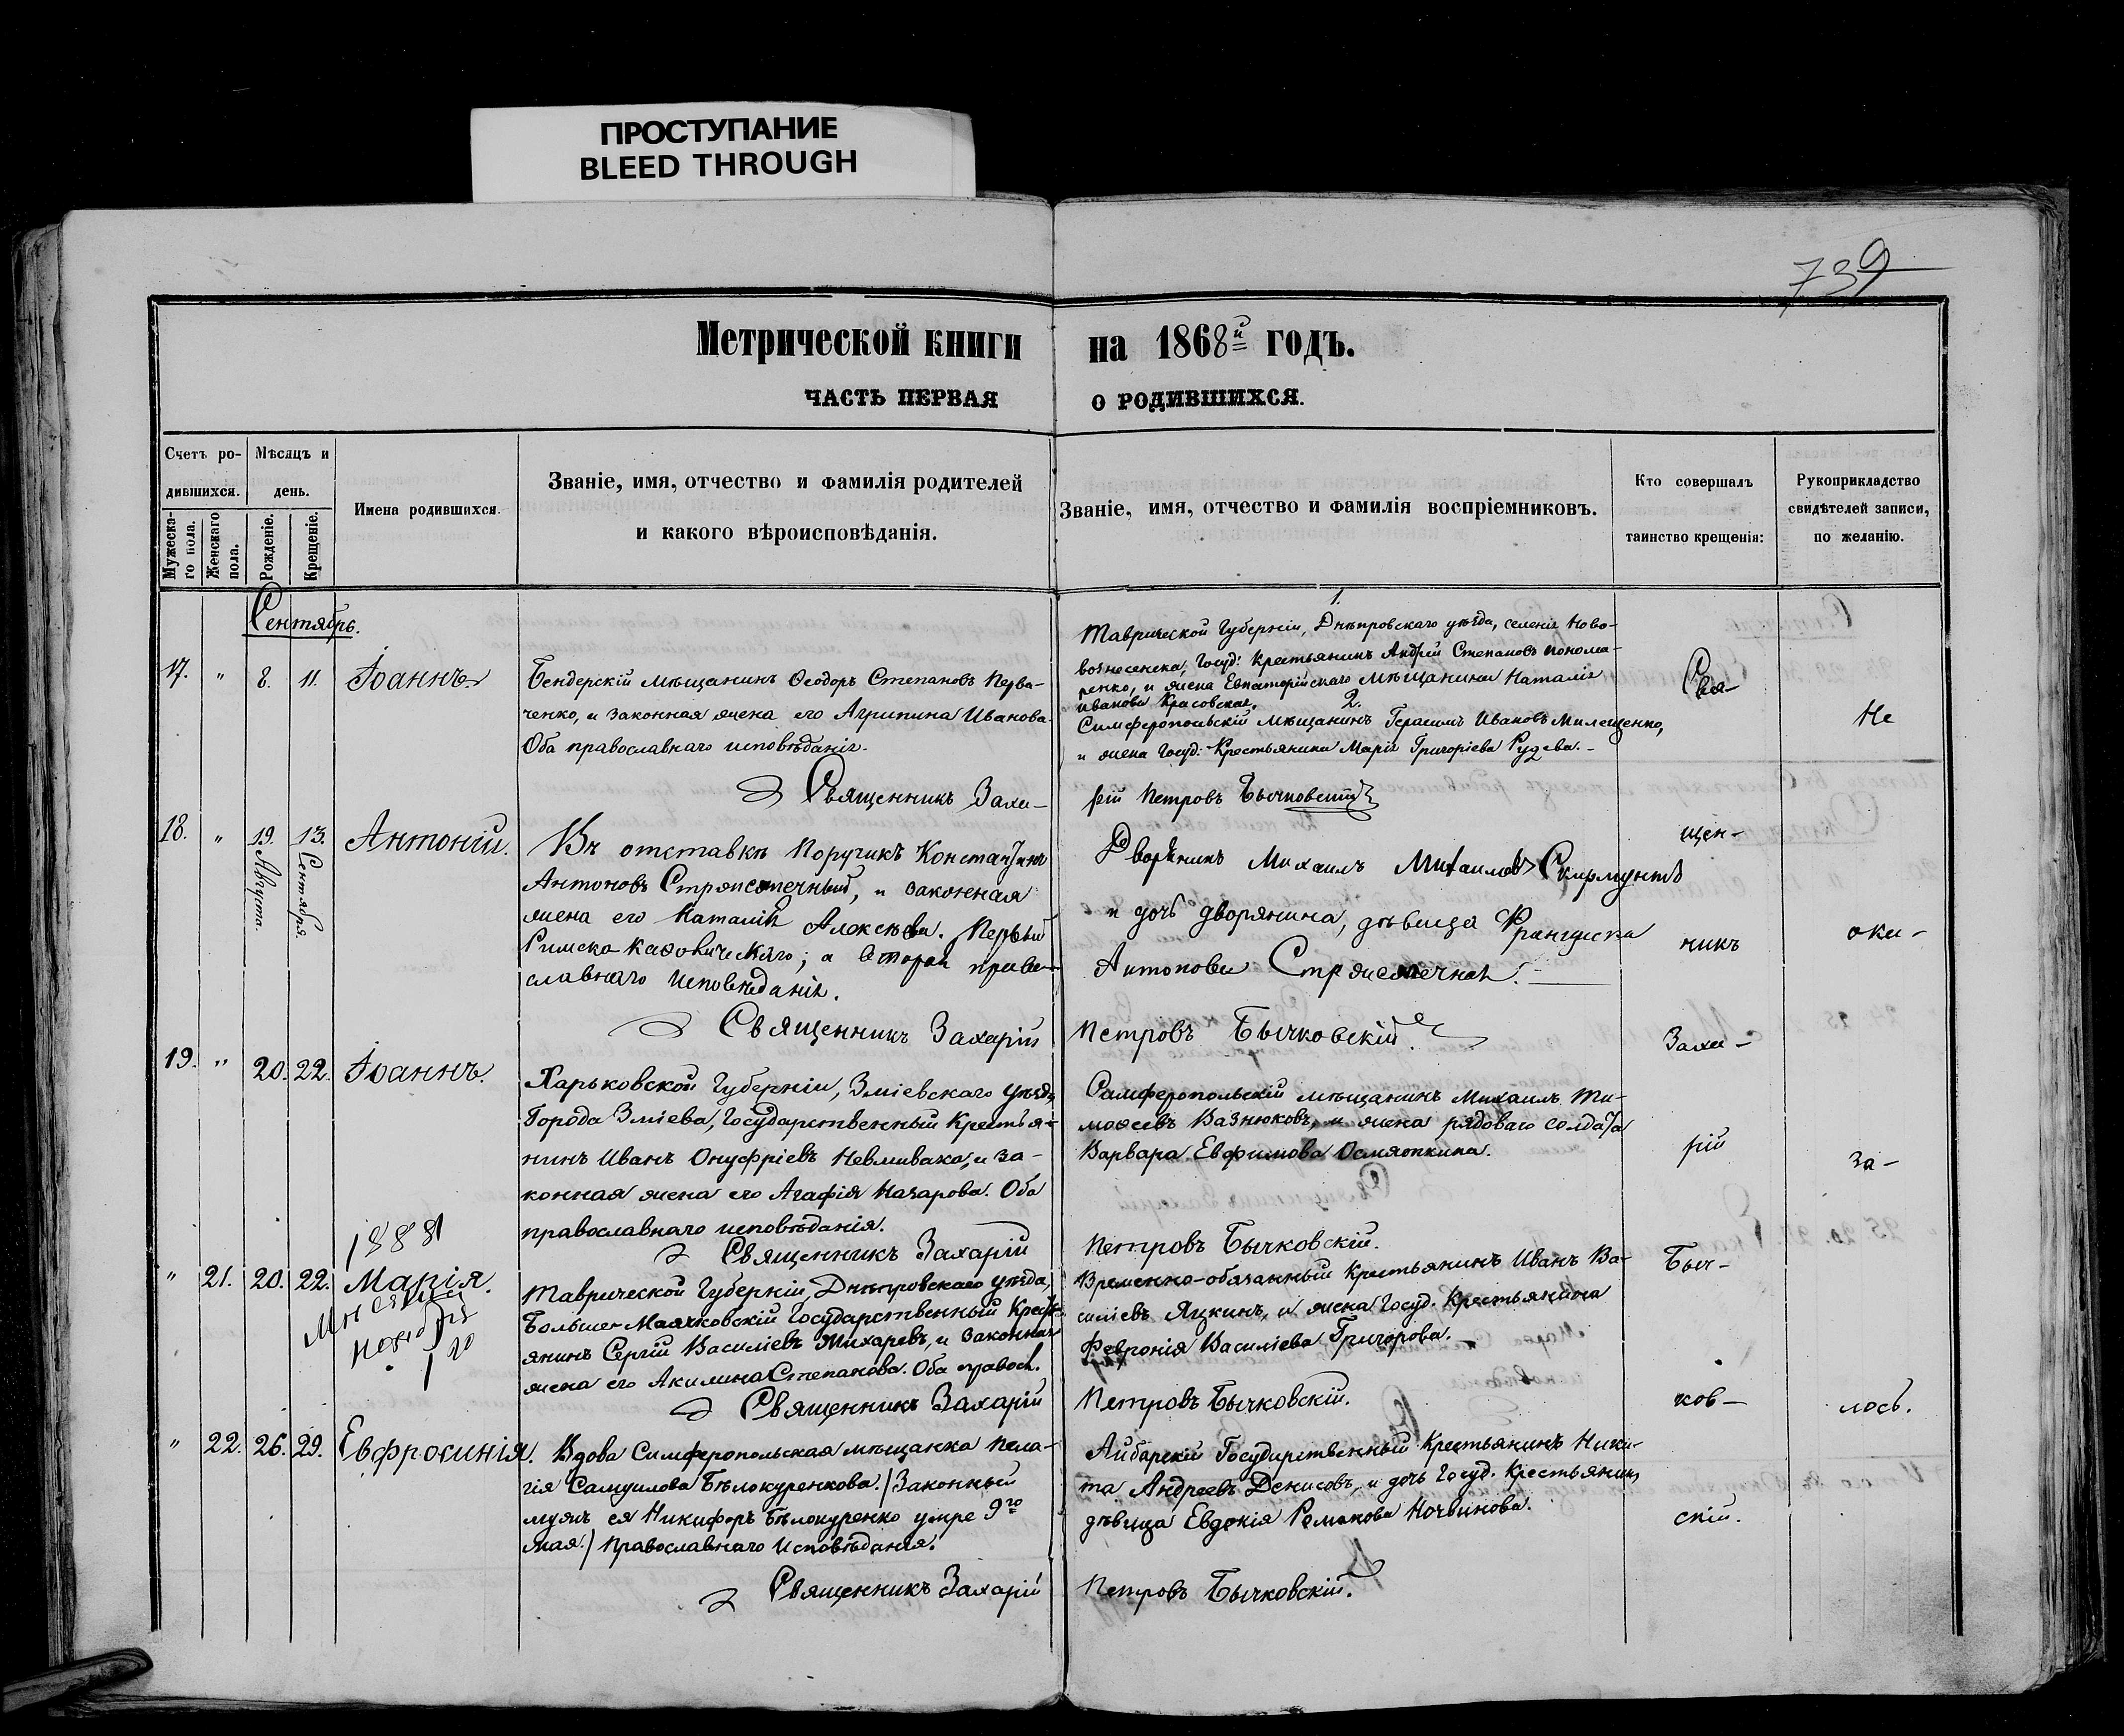 ПРОСТУПАНИЕ
BLEED THROUGH
739
Метрической книги на 1868й годъ.
ЧАСТЬ ПЕРВАЯ О РОДИВШИХСЯ.
Счетъ ро-
дившихся.
Мужеска-
го пола.
Женскаго
пола.
Мѣсяцъ и
день.
Рожденіе.
Крещеніе.
Имена родившихся.
Званіе, имя, отчество и фамилія родителей
и какого вѣроисповѣданія.
Званіе, имя, отчество и фамилія воспріемниковъ.
Кто совершалъ
таинство крещенія:
Рукоприкладство
свидѣтелей записи,
по желанію.
Сентябрь.
17. " 8. 11. Іоаннъ
Бендерскій мѣщанинъ Ѳеодоръ Степановъ Перва-
ченко, и законная жена его Агрипина Иванова.
Оба православнаго исповѣданія.
1.
Таврической Губерніи, Днѣпровскаго уѣзда, селенія Ново-
вознесенска, Госуд: Крестьянинъ Андрей Степановъ Понома-
ренко, и жена Евпаторійскаго мѣщанина Наталія
Иванова Красовская. 2.
Симферопольскій мѣщанинъ Герасимъ Ивановъ Милещенко,
и жена Госуд: Крестьянина Марія Григоріева Рудева.
Священникъ Заха-
рій Петровъ Бычковскій
18. " 19. 13. Антоній.
Августа. Сентября.
Въ отставкѣ Поручикъ Константинъ
Антоновъ и законная
жена его Наталія Алексѣева. Первый
Римско-Каѳолическаго; а вторая право-
славнаго исповѣданія.
Дворянинъ Михаилъ Михаиловъ Скирмунтъ
и дочь дворянина, дѣвица Францишка
Антонова
Священникъ Захарій
Петровъ Бычковскій.
19. " 20. 22. Іоаннъ.
Харьковской Губерніи, Зміевскаго уѣзда,
Города Зміева, Государственный Крестья-
нинъ Иванъ Онуфріевъ Невмивака, и за-
конная жена его Агафія Назарова. Оба
православнаго исповѣданія.
Симферопольскій мѣщанинъ Михаилъ Ти-
моѳеевъ Вазнюковъ, и жена рядоваго солдата
Варвара Евфимова Осмяткина.
Священникъ Захарій
Петровъ Бычковскій.
1888
" 21. 20. 22. Марія.
Мѣсяца
Ноября
1 го
Таврической Губерніи, Днѣпровскаго уѣзда,
Больше-Маячковскій Государственный Кресть-
янинъ Сергій Василіевъ Жихаревъ, и законная
жена его Акилина Степанова. Оба правосл.
Временно-обязанный Крестьянинъ Иванъ Ва-
силіевъ Яцкинъ, и жена Госуд. Крестьянина
Февронія Василіева Григорова.
Священникъ Захарій
Петровъ Бычковскій.
" 22. 26. 29. Евфросинія.
Вдова Симферопольская мѣщанка Пела-
гія Самуилова Бѣлокуренкова. / Законный
мужъ ея Никифоръ Бѣлокуренко умре 9го
Мая. / Православнаго Исповѣданія.
Айбарскій Государственный Крестьянинъ Ники-
та Андреевъ Денисовъ, и дочь Госуд. Крестьянина,
дѣвица Евдокія Романова Ночвинова.
Священникъ Захарій
Петровъ Бычковскій.
Свя-
щен-
никъ
Заха-
рій
Быч-
ков-
скій.
Не
ока-
за-
лось.